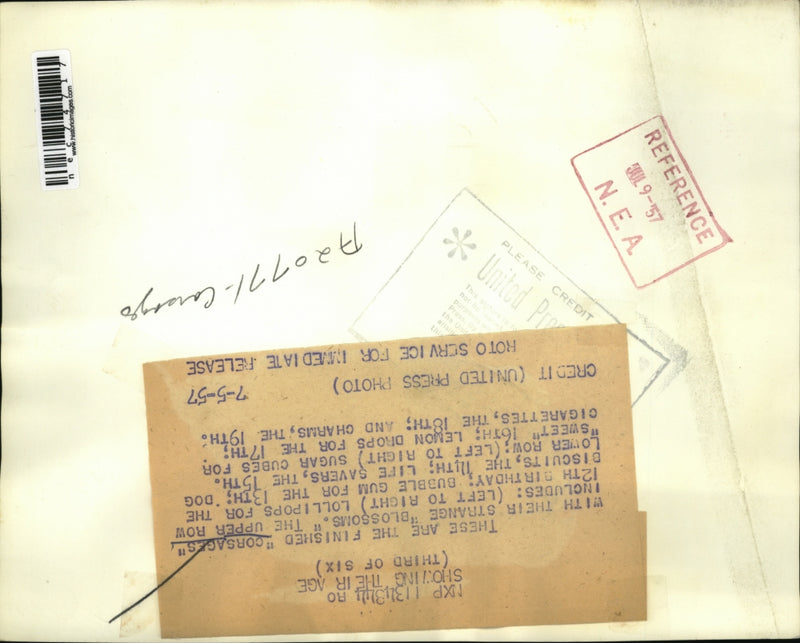 n e c 2 4 7 1 7
www.historicimages.com
REFERENCE
JUL 9-'57
N. E. A.
PLEASE CREDIT
United Pre
A20771-Corsage
NXP 1134344 RO
SHOWING THEIR AGE
(THIRD OF SIX)
THESE ARE THE FINISHED "CORSAGES",
WITH THEIR STRANGE "BLOSSOMS." THE UPPER ROW
INCLUDES: (LEFT TO RIGHT) LOLLIPOPS FOR THE
12TH BIRTHDAY; BUBBLE GUM FOR THE 13TH; DOG
BISCUITS, THE 14TH; LIFE SAVERS, THE 15TH.
LOWER ROW; (LEFT TO RIGHT) SUGAR CUBES FOR
"SWEET" 16TH; LEMON DROPS FOR THE 17TH;
CIGARETTES, THE 18TH; AND CHARMS, THE 19TH.
CREDIT (UNITED PRESS PHOTO) 7-5-57
ROTO SERVICE FOR IMMEDIATE RELEASE